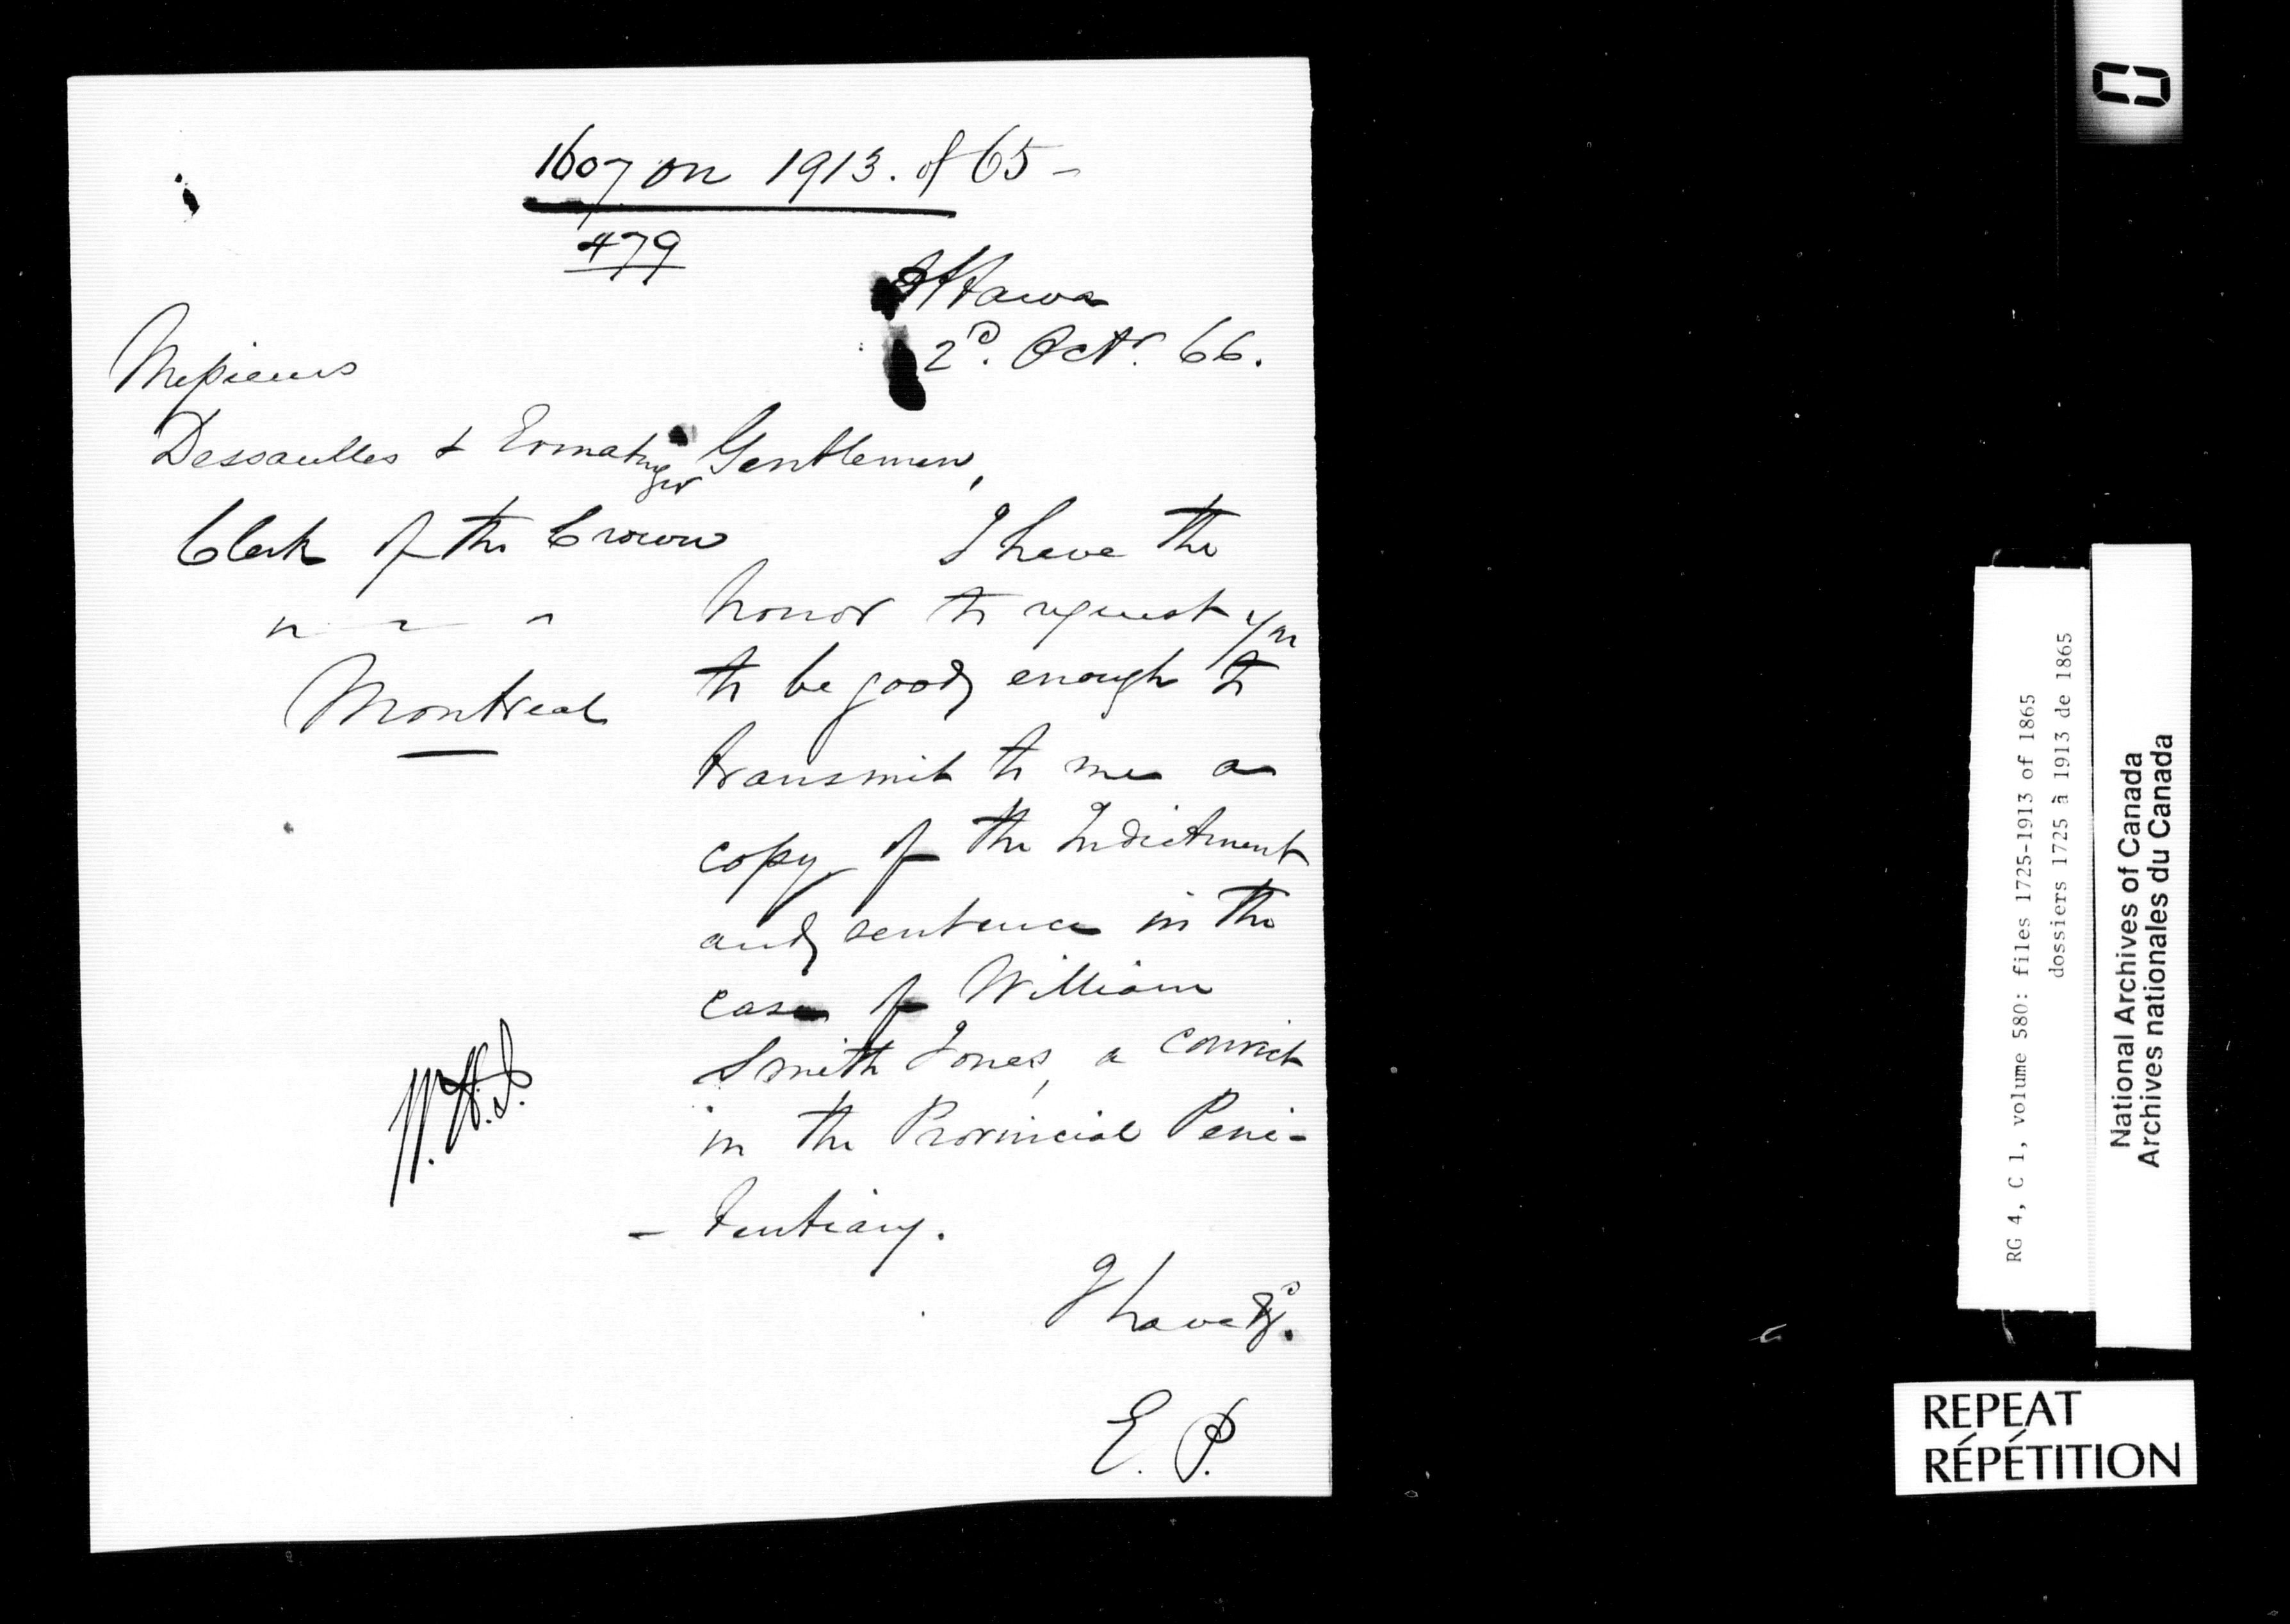 1607 on 1913. of 65 -
479
Ottawa
2d. Octr. 66.
Messieurs
Dessaulles & Ermatinger
Clerk of the Crown
" " "
Montreal
Gentlemen,
I have the
honor to request you
to be good enough to
transmit to me a
copy of the Indictment
and sentence in the
case of William
Smith Jones, a convict
in the Provincial Peni-
- tentiary.
I have &c.
E. P.
RG 4, C 1, volume 580: files 1725-1913 of 1865
dossiers 1725 à 1913 de 1865
National Archives of Canada
Archives nationales du Canada
REPEAT
RÉPÉTITION